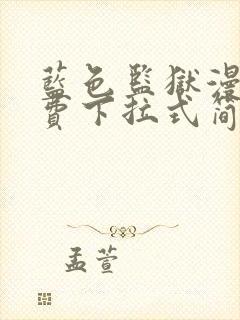 藍色監獄漫
費下拉式简
孟萱